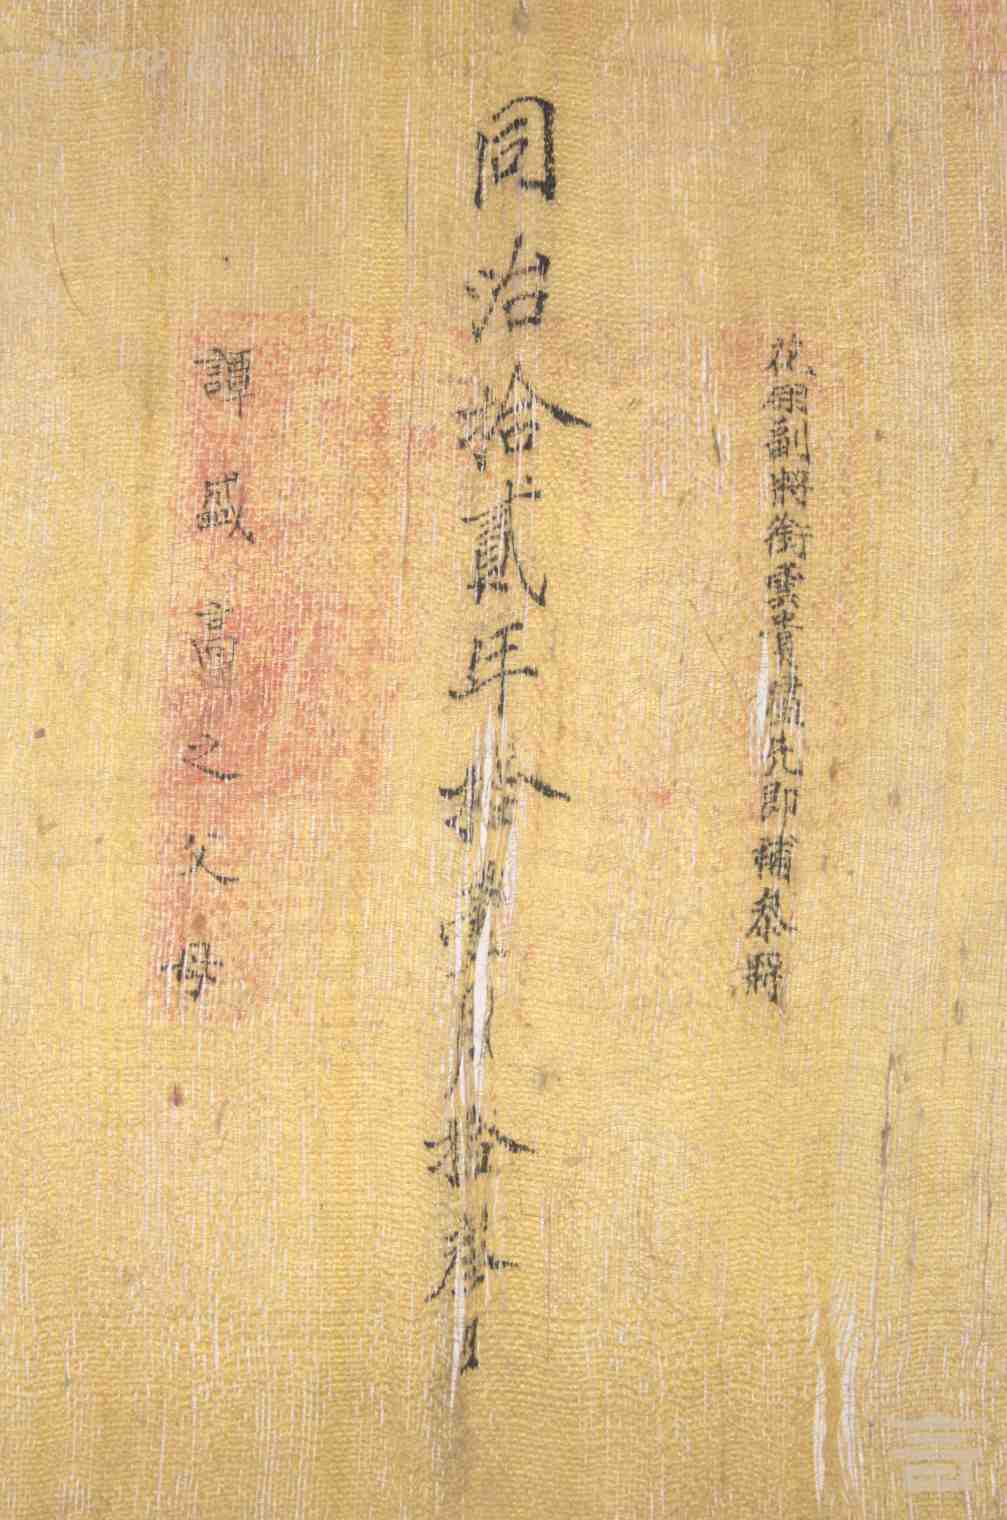 花翎副將銜雲貴儘先即補叅將
同治拾貳年拾壹月拾叁日
譚盛高之父母